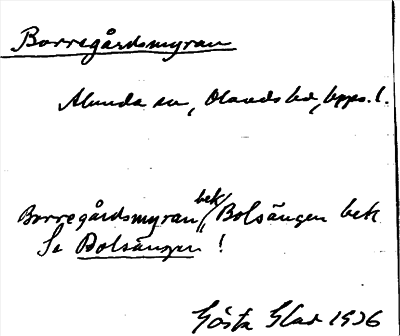 Borregårdsmyran
Alunda sn, Olands hd, Upps. l.
Borregårdsmyran bek/ Bolsängen bek
Se Bolsängen !
Gösta Glad 1936